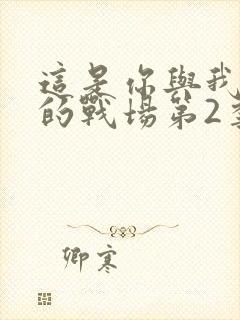 這是你與我
的戰場第2季
卿寒